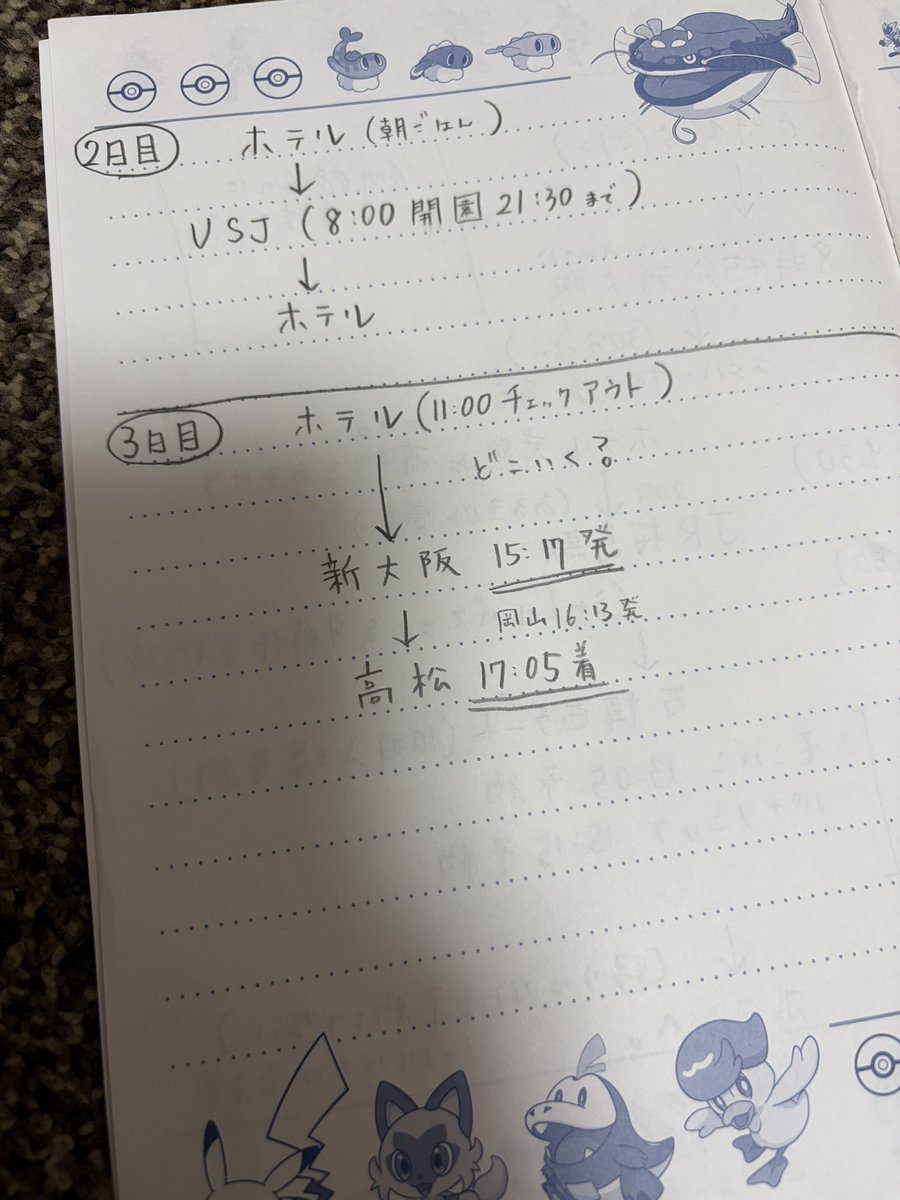 2日目 ホテル(朝ごはん)
↓
USJ (8:00 開園 21:30 まで)
↓
ホテル
3日目 ホテル(11:00 チェックアウト)
↓ どこいく?
新大阪 15:17 発
↓ 岡山 16:13 発
高松 17:05 着